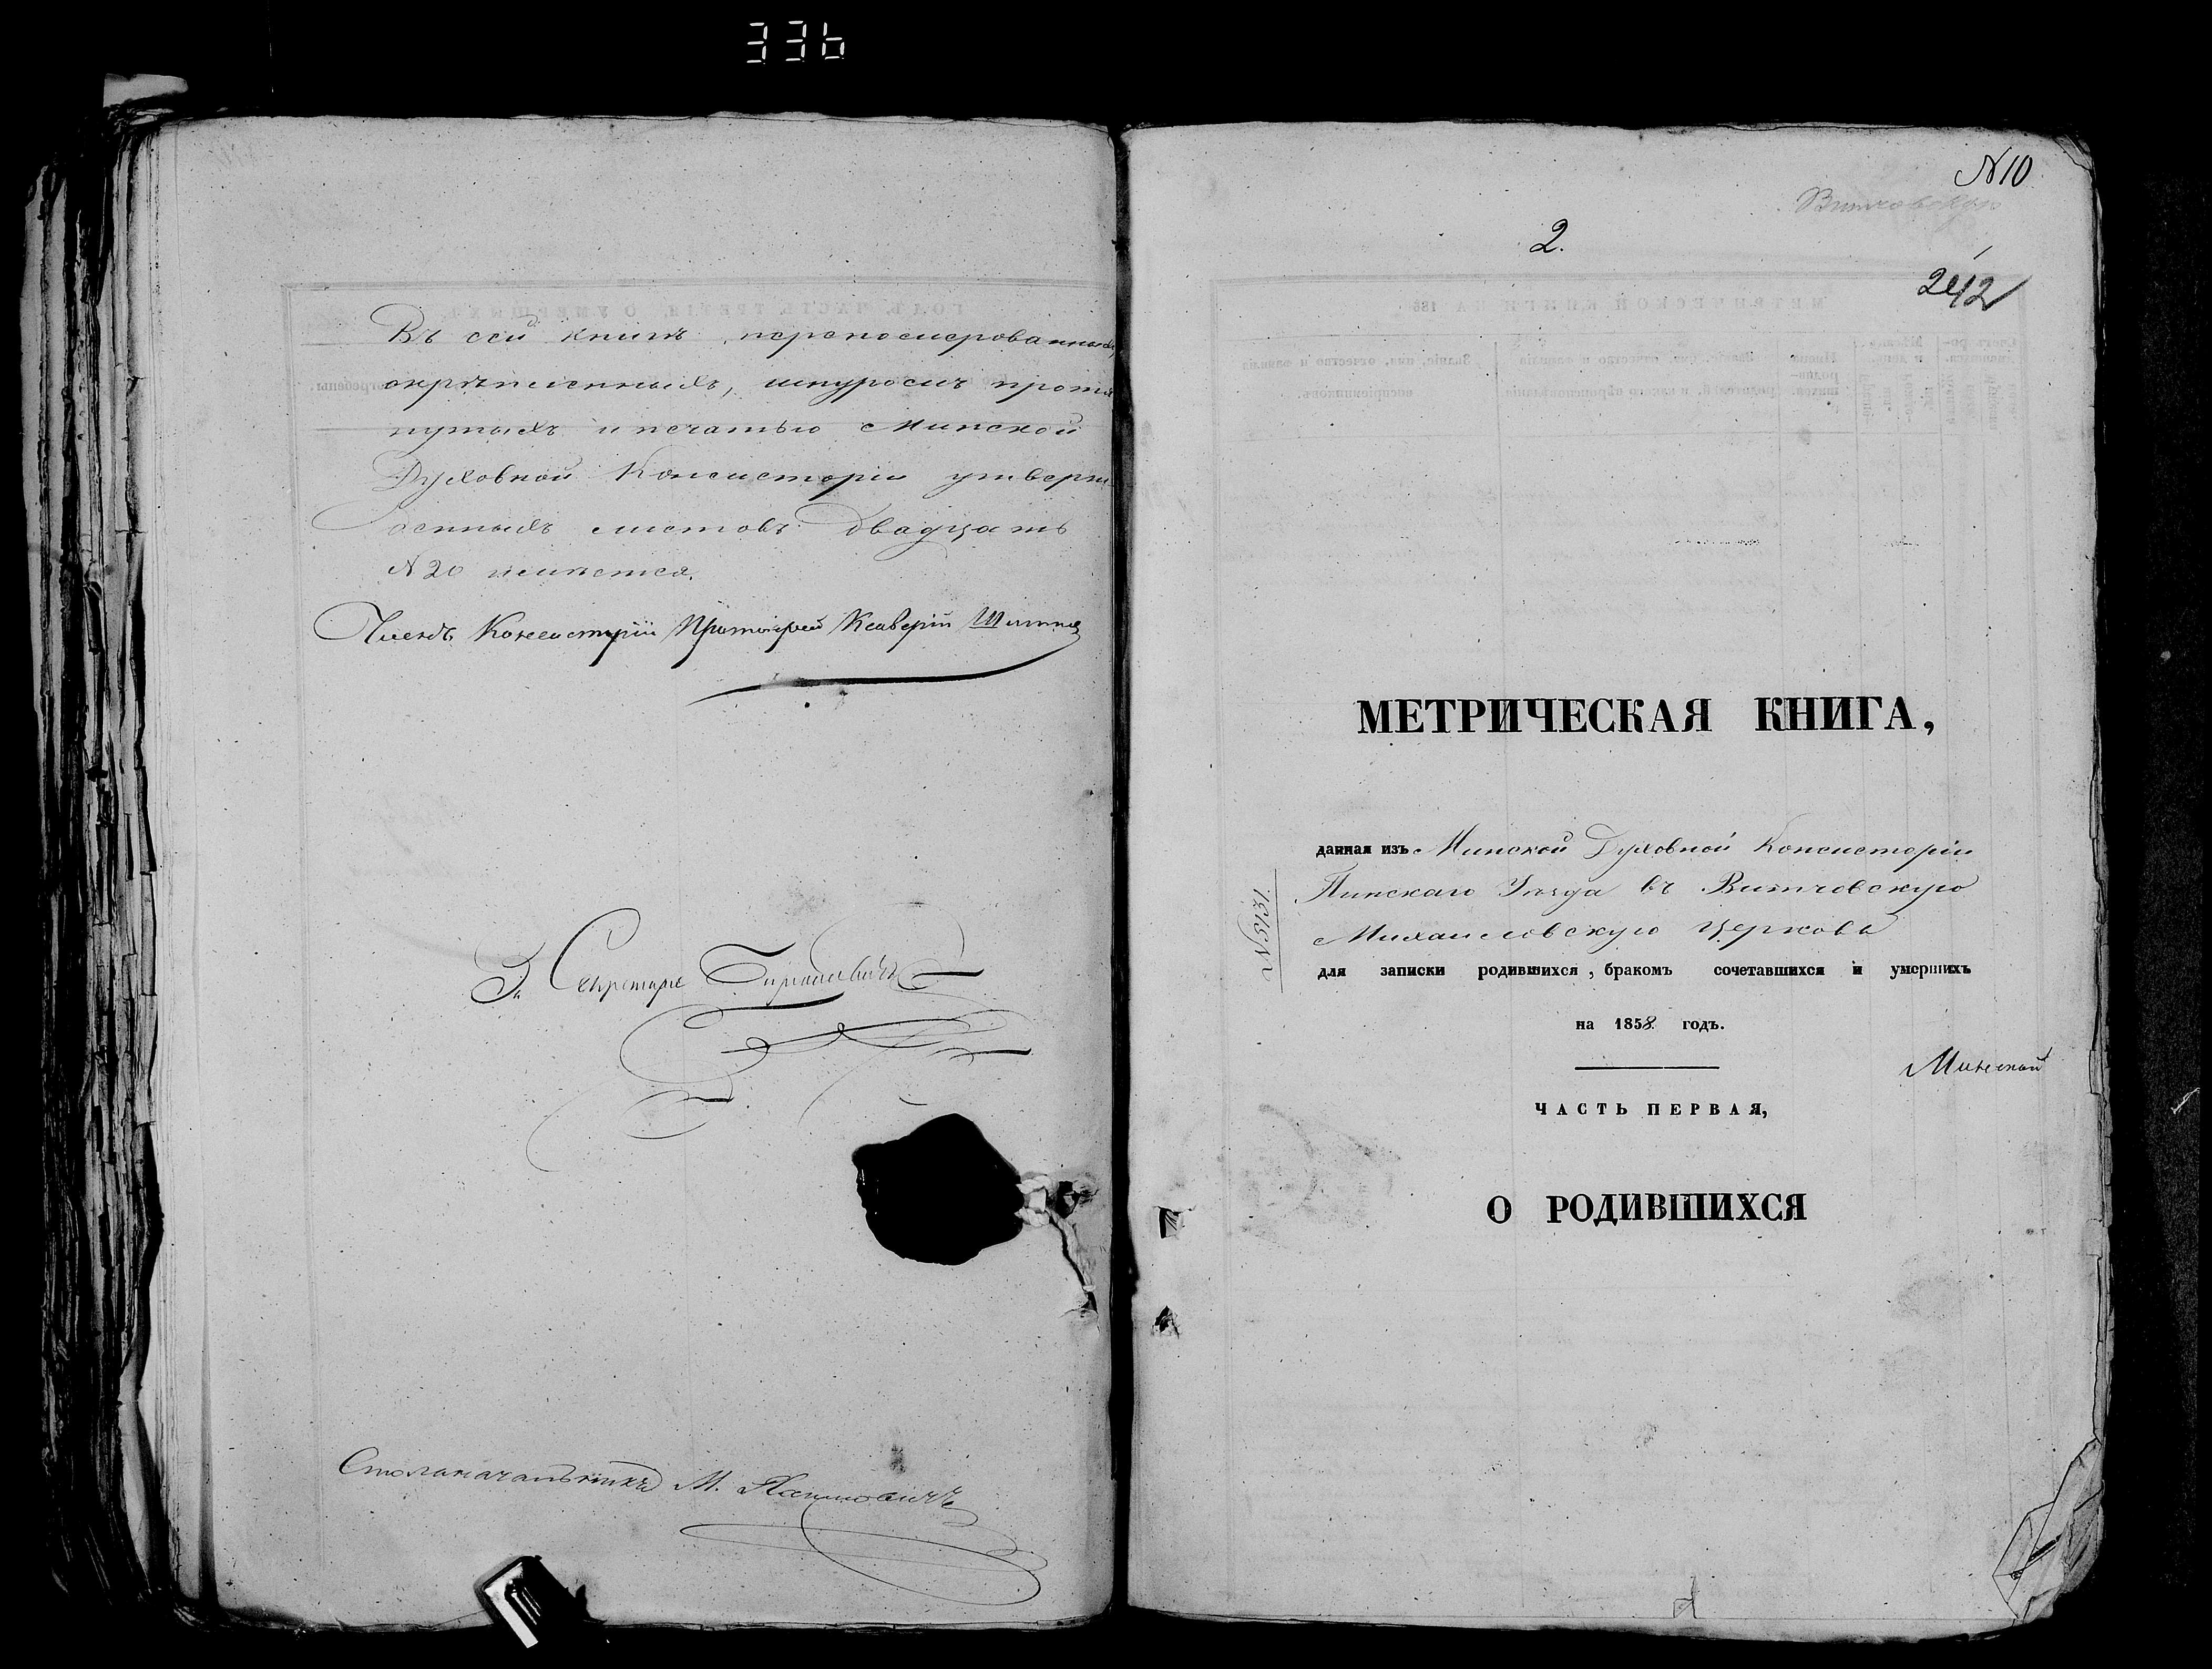 336
Въ сей книгѣ, переномерованныхъ,
скрѣпленныхъ, шнуромъ протя
нутыхъ и печатью Минской
Духовной Консисторіи утверж
денныхъ листовъ двадцать
№ 20 имѣется.
Членъ Консисторіи Протоіерей Ксаверій
За Секретаря
Столоначальникъ М.
№ 10
Витчовскую
2.
242
МЕТРИЧЕСКАЯ КНИГА,
данная изъ Минской Духовной Консисторіи
Пинскаго Уѣзда въ Витчовскую
Михаиловскую Церковь
№ 3131.
для записки родившихся, бракомъ сочетавшихся и умершихъ
на 1858 годъ.
Минской
ЧАСТЬ ПЕРВАЯ,
О РОДИВШИХСЯ